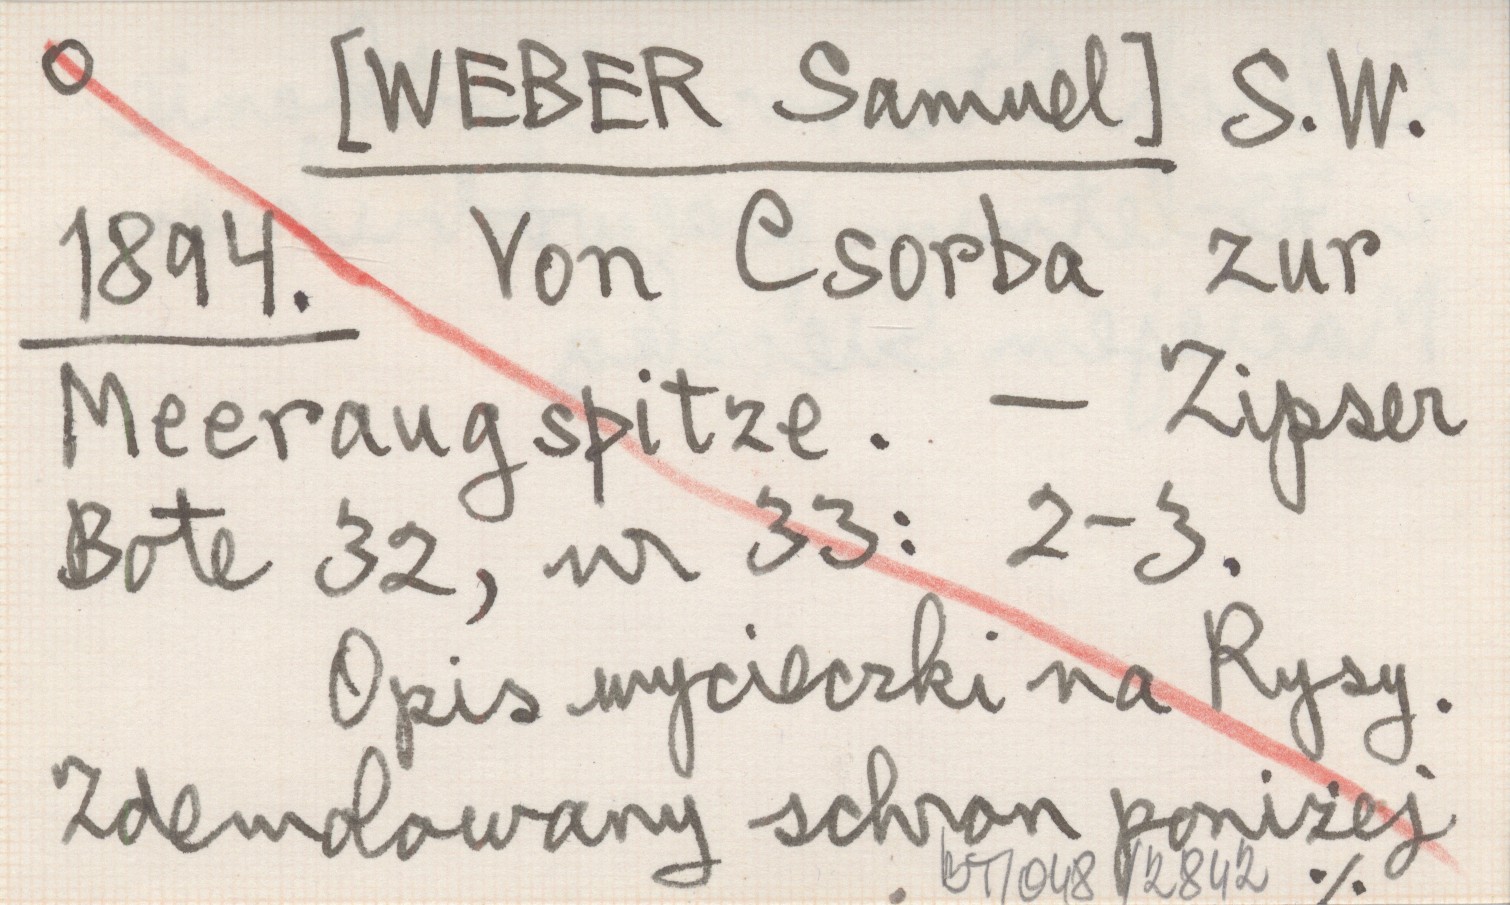 [WEBER Samuel] S.W.
1894. Von Csorba zur
Meeraugspitze. — Zipser
Bote 32, nr 33: 2-3.
Opis wycieczki na Rysy.
Zdemolowany schron poniżej
BT/048/2842 ./.